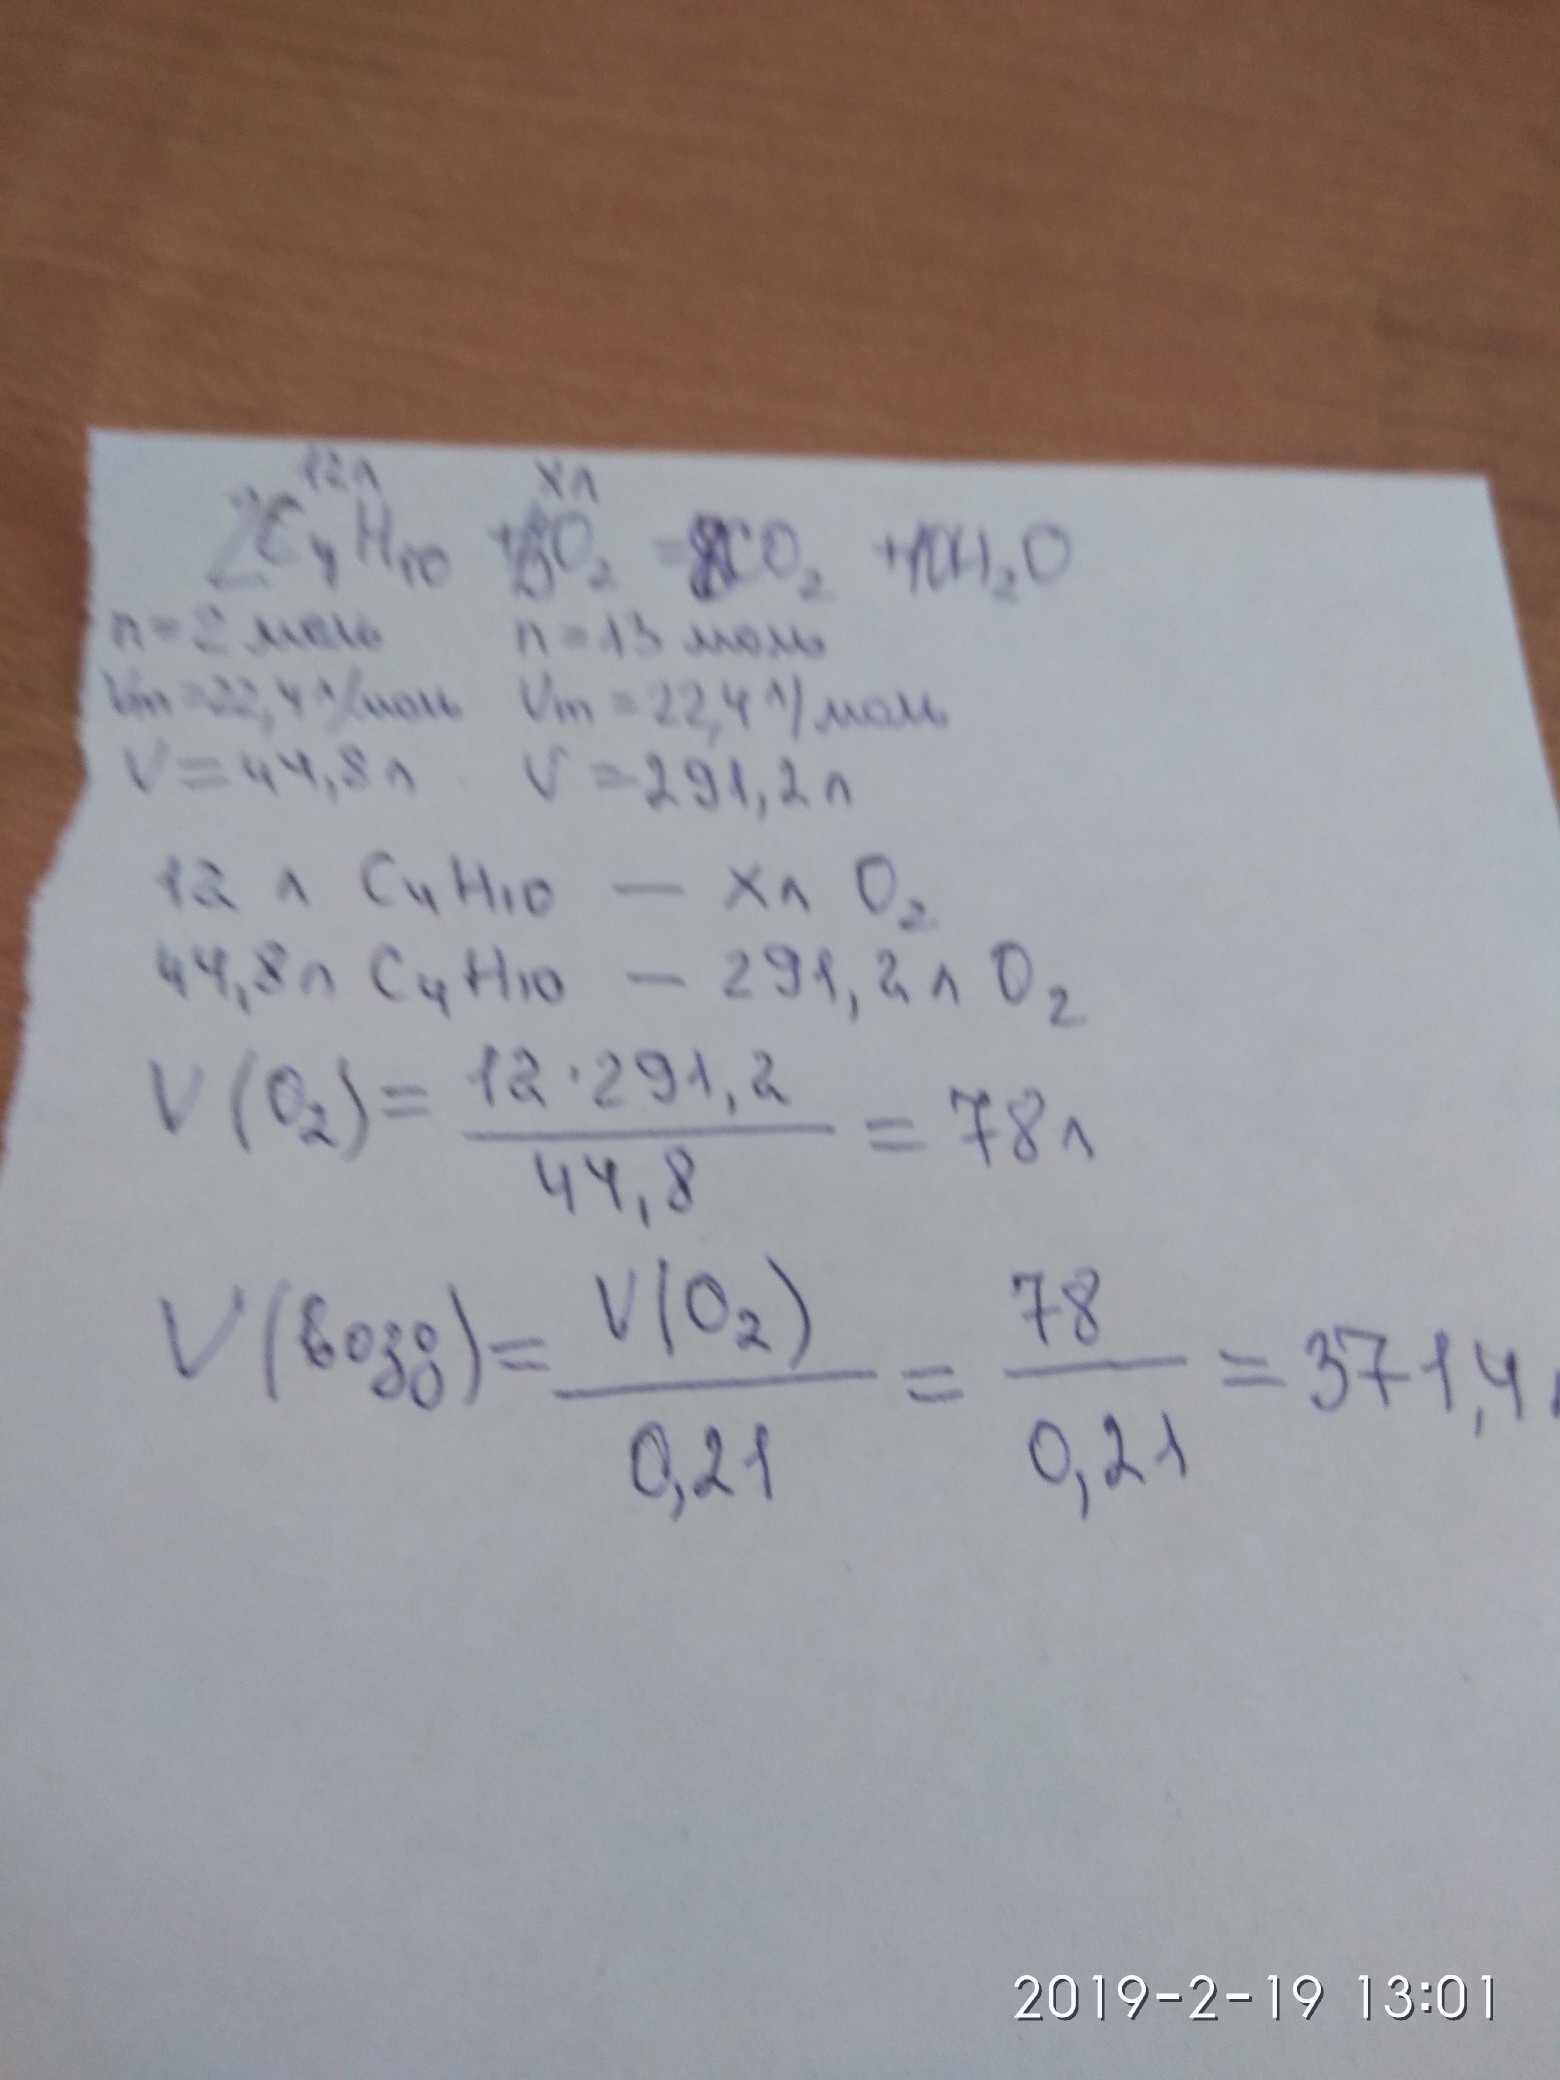 12л хл
2C₄H₁₀ +13O₂ =8CO₂ +10H₂O
n=2 моль n=13 моль
Vm=22,4 л/моль Vm=22,4 л/моль
V=44,8л V=291,2л
12 л C₄H₁₀ — хл O₂
44,8л C₄H₁₀ — 291,2л O₂
V(O₂)= 12·291,2 / 44,8 = 78л
V(возд)= V(O₂) / 0,21 = 78 / 0,21 = 371,4л
2019-2-19 13:01